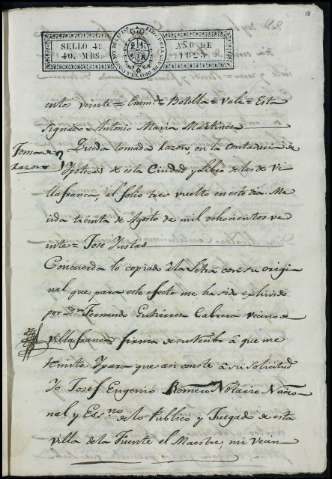 SELLO 4º
40. MRS.
AÑO DE
1825
ento veinte = Batilla = Vale = Esta
signado = Antonio Maria Martinez
Toma de
razon
Queda tomada razon en la Contaduria de
Ypotecas de esta Ciudad y libro de las de Vi
llafranca, al folio tres vuelto en este dia. Me
rida treinta de Agosto de mil ochocientos ve
inte = José
Concuerda lo copiado a la letra con su origi
nal que para este efecto me ha sido exhivido
por Dn Fernando Gutierrez Cabrera vecino de
Villafranca firma de su recibo á que me
remito Y para que asi conste á su solicitud
Yo Josef Eugenio Romero Notario
nal y Esno de lo Publico y Juzgado de esta
villa de la Fuente el Maestre, mi vecin